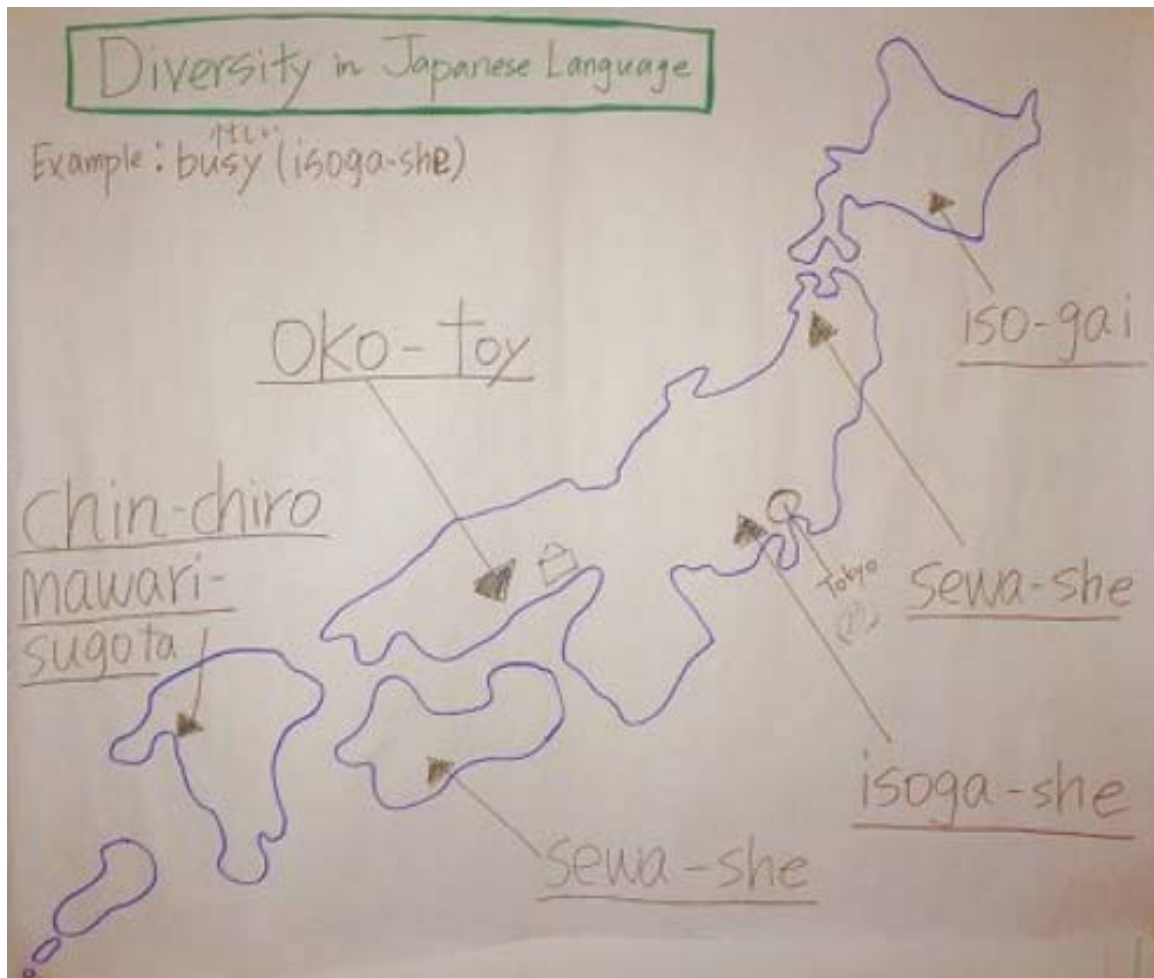 Diversity in Japanese Language
Example: busy (isoga-she)
iso-gai
oko-toy
chin-chiro
mawari-
sugota
Tokyo
sewa-she
isoga-she
sewa-she